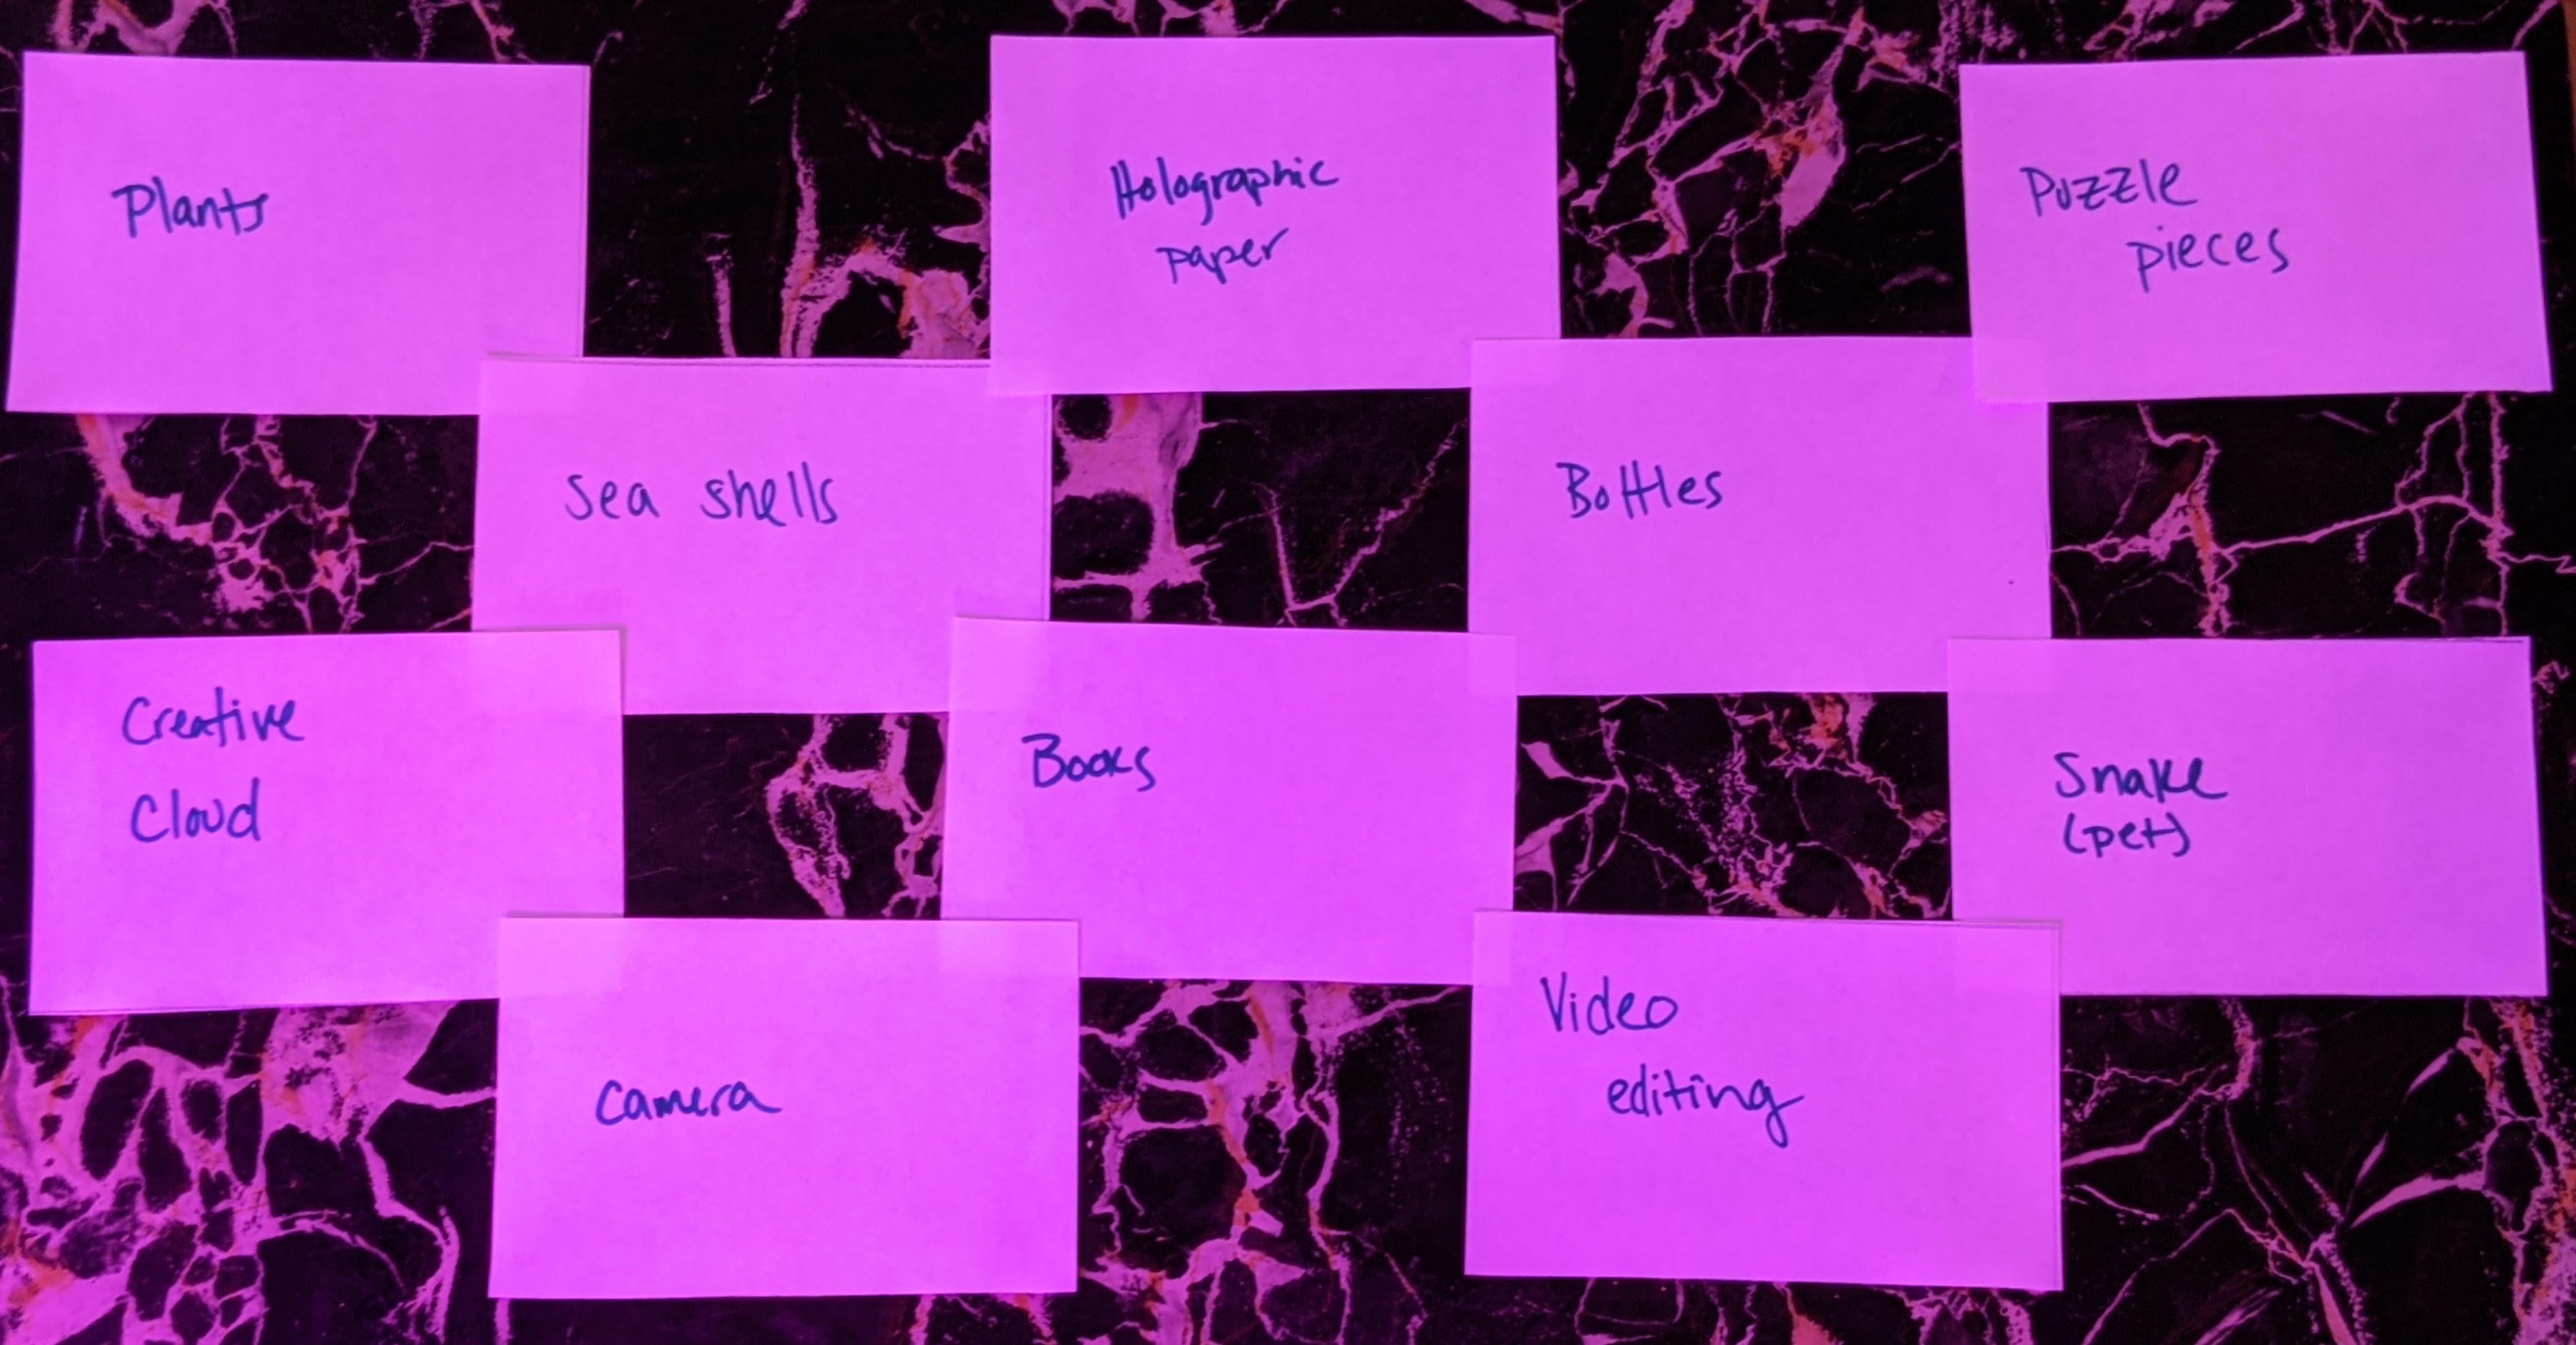 Plants
Holographic
paper
Puzzle
pieces
Sea shells
Bottles
Creative
Cloud
Books
Snake
(pet)
Camera
Video
editing